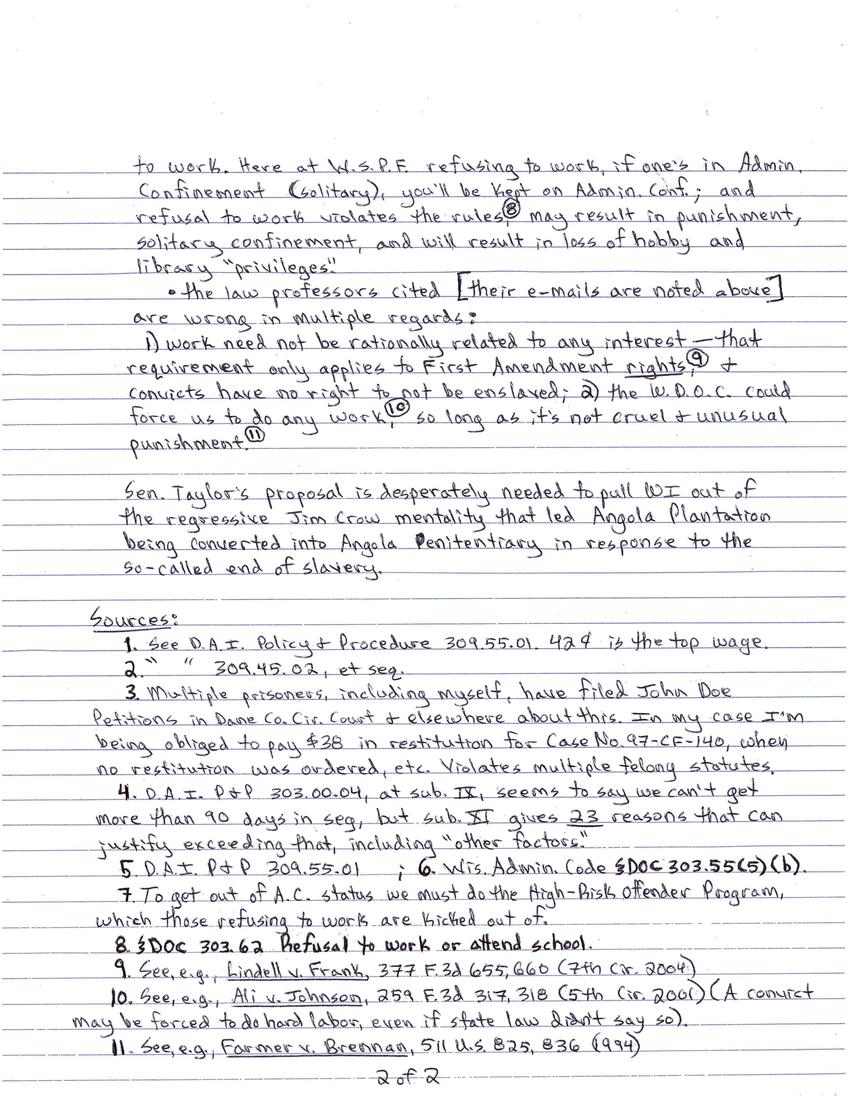 to work. Here at W.S.P.F. refusing to work, if one's in Admin.
Confinement (solitary), you'll be kept on Admin. Conf.; and
refusal to work violates the rules,⑧ may result in punishment,
solitary confinement, and will result in loss of hobby and
library "privileges."
• the law professors cited [their e-mails are noted above]
are wrong in multiple regards:
1) work need not be rationally related to any interest — that
requirement only applies to First Amendment rights,⑨ &
convicts have no right to not be enslaved; 2) the W.D.O.C. could
force us to do any work,⑩ so long as it's not cruel & unusual
punishment.⑪
Sen. Taylor's proposal is desperately needed to pull WI out of
the regressive Jim Crow mentality that led Angola Plantation
being converted into Angola Penitentiary in response to the
so-called end of slavery.
Sources:
1. See D.A.I. Policy & Procedure 309.55.01. 42¢ is the top wage.
2. " " 309.45.02, et seq.
3. Multiple prisoners, including myself, have filed John Doe
Petitions in Dane Co. Cir. Court & elsewhere about this. In my case I'm
being obliged to pay $38 in restitution for Case No. 97-CF-140, when
no restitution was ordered, etc. Violates multiple felony statutes.
4. D.A.I. P&P 303.00.04, at sub. IV, seems to say we can't get
more than 90 days in seg, but sub. XI gives 23 reasons that can
justify exceeding that, including "other factors."
5. D.A.I. P&P 309.55.01 ; 6. Wis. Admin. Code §DOC 303.55(5)(b).
7. To get out of A.C. status we must do the High-Risk Offender Program,
which those refusing to work are kicked out of.
8. §DOC 303.62 Refusal to work or attend school.
9. See, e.g., Lindell v. Frank, 377 F.3d 655, 660 (7th Cir. 2004)
10. See, e.g., Ali v. Johnson, 259 F.3d 317, 318 (5th Cir. 2001) (A convict
may be forced to do hard labor, even if state law didn't say so).
11. See, e.g., Farmer v. Brennan, 511 U.S. 825, 836 (1994)
2 of 2